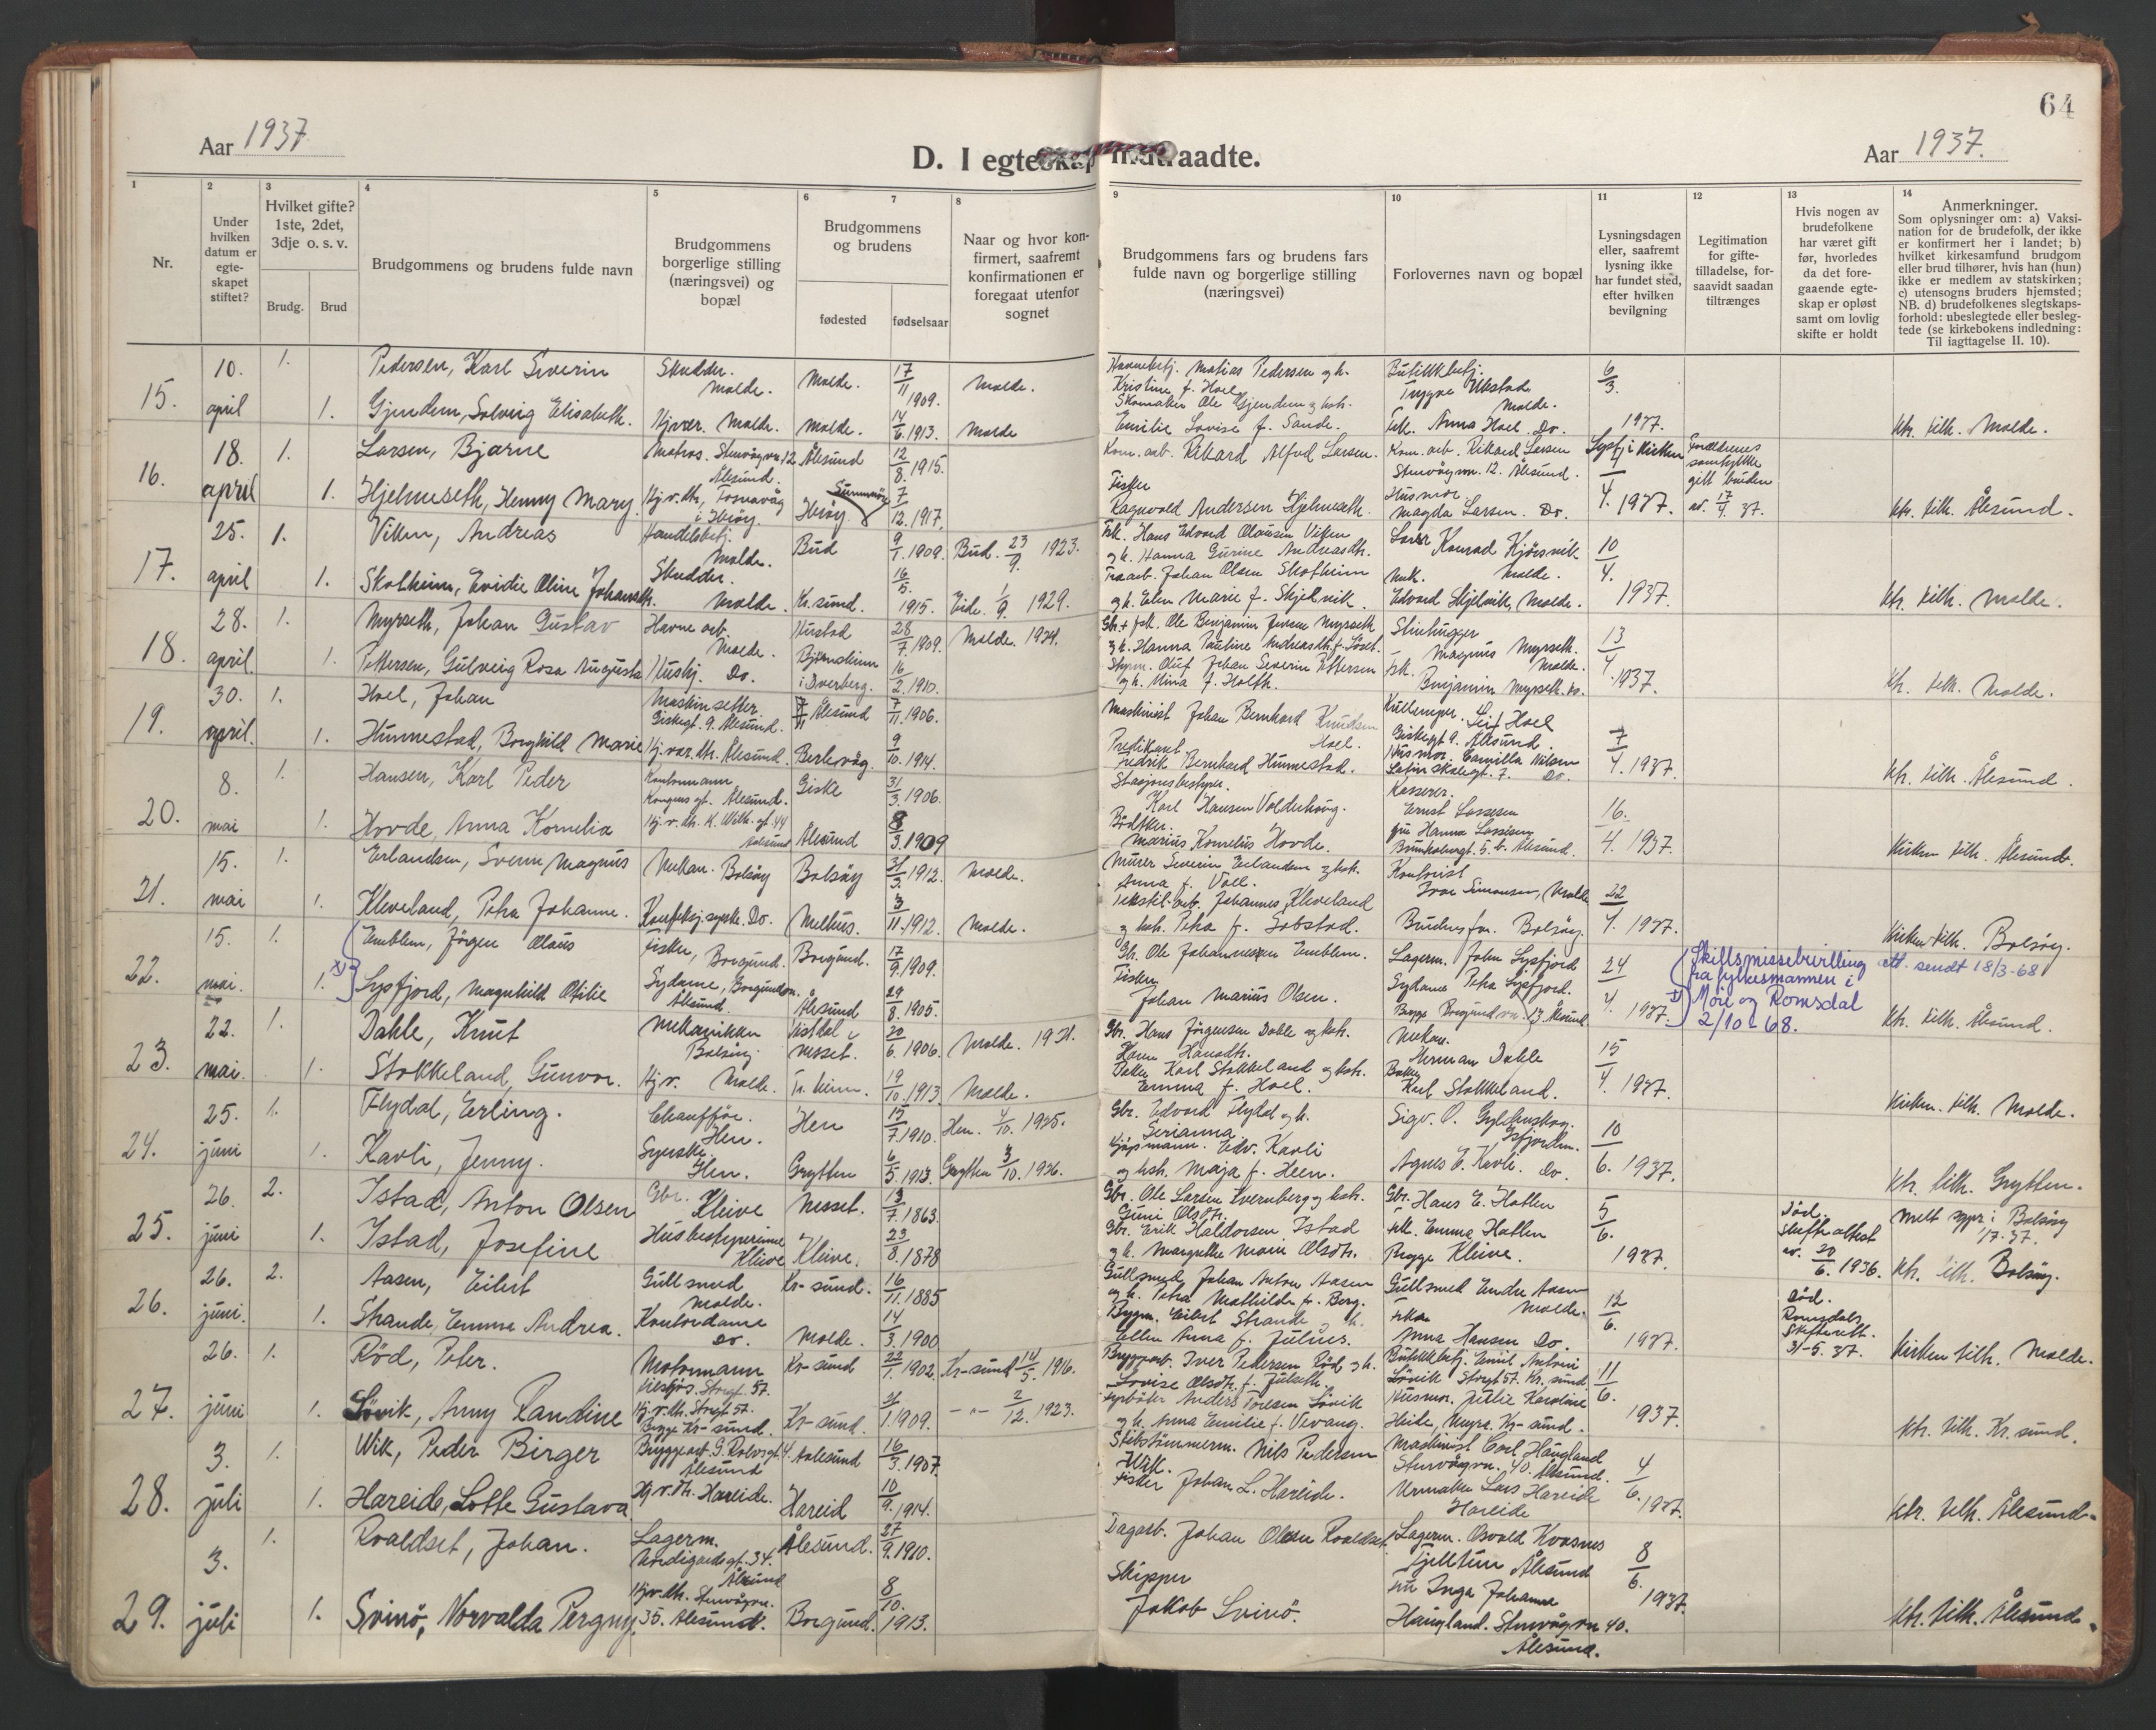 64
Aar 1937
D. I egteskap indtraadte.
Aar 1937.
1
2
3
4
5
6
7
8
9
10
11
12
13
14
Nr.
Under
hvilken
datum er
egte-
skapet
stiftet?
Hvilket gifte?
1ste, 2det,
3dje o. s. v.
Brudg.
Brud
Brudgommens og brudens fulde navn
Brudgommens
borgerlige stilling
(næringsvei) og
bopæl
Brudgommens
og brudens
fødested
fødselsaar
Naar og hvor kon-
firmert, saafremt
konfirmationen er
foregaat utenfor
sognet
Brudgommens fars og brudens fars
fulde navn og borgerlige stilling
(næringsvei)
Forlovernes navn og bopæl
Lysningsdagen
eller, saafremt
lysning ikke
har fundet sted,
efter hvilken
bevilgning
Legitimation
for gifte-
tilladelse, for-
saavidt saadan
tiltrænges
Hvis nogen av
brudefolkene
har været gift
før, hvorledes
da det fore-
gaaende egte-
skap er opløst
samt om lovlig
skifte er holdt
Anmerkninger.
Som oplysninger om: a) Vaksi-
nation for de brudefolk, der ikke
er konfirmert her i landet; b)
hvilket kirkesamfund brudgom
eller brud tilhører, hvis han (hun)
ikke er medlem av statskirken;
c) utensogns bruders hjemsted;
NB. d) brudefolkenes slegtskaps-
forhold: ubeslegtede eller besleg-
tede (se kirkebokens indledning:
Til iagttagelse II. 10).
15. 10. april
1. Pedersen, Karl Severin Skredder. Molde. Molde. 17/11 1909. Molde.
Matias Pedersen og h. Kristine f. Hoel
Butikkbetj. Trygve Molde. 6/3. 1937.
1. Gjendem, Solveig Elisabeth. Hj.vær. Molde. Molde. 14/6. 1913. Molde
Skomaker Ole Gjendem og hsh. Emilie Lovise f. Sande.
Frk. Anna Hoel. Do.
ktr. tilh. Molde.
16. 18. april
1. Larsen, Bjarne Matros. Stenvågvn. 12 Ålesund. Ålesund 12/8. 1915.
Kom. arb. Rikard Alfred Larsen.
Kom. arb. Rikard Larsen Stenvågvn. 12. Ålesund.
Lyst i Kirken 1/4. 1937.
Foreldrenes samtykke gitt bruden av 17/4. 37.
1. Hjelmeseth, Henny Mary. Hj.v. Mr, Fosnavåg i Herøy. Herøy Sunnmøre 7/12. 1917.
Fisker Ragnvald Andersen Hjelmeseth.
Husmor Magda Larsen. Do.
ktr. tilh. Ålesund.
17. 25. april
1. Viken, Andreas Handelsbetj. Molde. Bud 9/1. 1909. Bud. 23/9. 1923.
Fisk. Hans Edvard Olausen Viken og h. Hanna Gurine Andreasdtr.
Konrad Kjörsvik Molde.
10/4. 1937.
1. Skotheim, Evidie Oline Johansdtr. Skredder. Molde. Kr.sund. 16/5. 1915. Eide. 1/9. 1929.
Johan Olsen Skotheim og h. Elen Marie f. Skjelvik
Edvard Skjelvik, Molde.
ktr. tilh. Molde.
18. 28. april
1. Myrseth, Johan Gustav Havne arb. Molde. Hustad 28/7. 1909. Molde. 1924.
Gbr. + fisk. Ole Benjamin Jensen Myrseth og h. Hanna Pauline Andreasdtr.
Stenhugger Magnus Myrseth. Molde.
13/4. 1937.
1. Pettersen, Gulveig Rosa Augusta Hushj. Do. Bjørnskinn i Dverberg. 16/2. 1910.
Oluf Johan Severin Pettersen og h. Mina f. Holth.
Fisk. Benjamin Myrseth. Do.
ktr. tilh. Molde.
19. 30. april.
1. Hoel, Johan Maskinsetter Giskegt. 9. Ålesund. Ålesund 7/11. 1906.
Maskinist Johan Bernhard Knudsen Hoel.
Leif Hoel Giskegt. 9. Ålesund.
7/4. 1937.
1. Hunnestad, Borghild Marie Hj.vær. Mr. Ålesund. Berlevåg. 9/10. 1914.
Predikant Fredrik Bernhard Hunnestad.
Husmor. Camilla Nilsen Latinskolegt. 7. Do.
ktr. tilh. Ålesund.
20. 8. mai
1. Hansen, Karl Peder Kontormann Kongens gt. Ålesund. Giske 31/3. 1906.
Stasjonsbestyrer. Karl Hansen Valderhaug.
Kasserer. Ernst Lassesen
16. 4. 1937.
1. Hovde, Anna Kornelia Hj.v. Mr. K. Wilh. gt. 44 Aalesund Ålesund 8/3. 1909
Bödtker. Marius Kornelius Hovde.
Fru Hanna Lassesen Brunholmgt. 5. b. Ålesund.
Kirken tilh. Ålesund.
21. 15. mai
1. Erlandsen, Svenn Magnus Mekan. Bolsöy Bolsöy 31/3. 1912. Molde.
Murer Severin Erlandsen og hsh. Anna f. Voll.
Kontorist Ivar Simonsen, Molde
22/4. 1937.
1. Kleveland, Petra Johanne. Konfeksj.syerske. Do. Melhus. 3/11. 1912. Molde.
Tekstil-arb. Johannes Kleveland og hsh. Petra f. Sobstad.
Brudens far. Bolsöy.
Kirken tilh. Bolsöy.
22. 15. mai.
1. Emblem, Jörgen Olaus fisker, Borgund. Borgund. 17/9. 1909.
Gbr. Ole Johannessen Emblem.
Lagerm. John Lysfjord
24/4. 1937.
Skilsmissebevilling fra fylkesmannen i Møre og Romsdal 2/10-68.
att. sendt 18/3-68
1. Lysfjord, Magnhild Otilie Sydame, Borgundvn. Ålesund. Ålesund 29/8. 1905.
Fisker Johan Marius Olsen.
Sydame Petra Lysfjord. Begge Borgundvn. 13. Ålesund
ktr. tilh. Ålesund.
23. 22. mai.
1. Dahle, Knut Mekaniker Bolsöy. Vistdal i Nesset. 20/6. 1906. Molde. 1921.
Gbr. Hans Jörgensen Dahle og hsh. Hansdtr.
Mekan. Herman Dahle
15/4. 1937.
1. Stokkeland, Gunvor. Hj.v. Molde. Tr.heim. 19/10. 1913 Molde.
Baker Karl Stokkeland og hsh. Emma f. Hoel.
Baker Karl Stokkeland.
Kirken. tilh. Molde.
24. 25. juni
1. Flydal, Erling. Chauffør. Hen. Hen 15/7. 1910. Hen. 4/10. 1925.
Gbr. Edvard Flydal og h. Serianna
Sigv. O. Gyldenskog. Isfjorden.
10/6. 1937.
1. Kavli, Jenny. Syerske. Hen. Grytten 6/5. 1913. Grytten 3/10. 1926.
Edv. Kavli og hsh. Maja f. Heen.
Agnes E. Kavli. Do.
ktr. tilh. Grytten.
25. 26. juni
2. Istad, Anton Olsen Gbr. Kleive Nesset. 13/7. 1863.
Gbr. Ole Larsen Tvernberg og hsh. Guni Olsdtr.
Gbr. Hans E. Hatlen
5/6. 1937.
Död. Skifteattest av. 20/6. 1936.
Melt spr. i Bolsöy
1. Istad, Josefine Husbestyrerinne Kleive Kleive. 23/8. 1878
Gbr. Erik Haldorsen Istad og h. Margrethe Marie Olsdtr.
Frk. Emma Hatlen Begge Kleive.
ktr. tilh. Bolsöy.
26. 26. juni.
2. Aasen, Eilert Gullsmed Molde. Kr-sund. 16/11. 1885
Gullsmed Johan Anton Aasen og h. Petra Mathilde f. Berg.
Gullsmed Endre Aasen Molde.
12/6. 1937.
Död. Romsdals Skifterett. 31-5. 37.
1. Strande, Emma Andrea. Kontordame Do. Molde. 14/3. 1900
Bygm. Eilert Strande og h. Ellen Anna f. Julnes.
Anna Hansen Do.
Kirken tilh. Molde.
27. 26. juni
1. Röd, Peter. Motormann Storgt. 57. Kr-sund 22/1. 1902. Kr-sund 14/5. 1916.
Bryggearb. Iver Pedersen Röd og h. Lovise Olsdtr. f. Julseth.
Butikkbetj. Emil Antoni Lövik Storgt 57. Kr. sund.
11/6. 1937.
1. Lövik, Anny Randine Hj.v. Mr. Storgt 57. Begge Kr-sund. Kr-sund. 1. 1909. -"- 2/12. 1923.
Anders Toresen Lövik og h. Anna Emilie f. Vevang.
Husmor. Julie Karoline Heide, Kr-sund.
ktr. tilh. Kr. sund.
28. 3. juli
1. Wik, Peder Birger Bryggearb. G. Rolvsgt. 4. Ålesund Aalesund 16/3. 1907.
Skibstömmerm. Nils Pedersen Wik.
Maskinist Carl Haugland Stenvågvn. 40. Ålesund.
4/6. 1937.
1. Hareide, Lotte Gustava Hj.v. Mr. Hareide. Hareid 10/9. 1914.
Fisker Johan L. Hareide.
Urmaker Lars Hareide Hareide
ktr. tilh. Ålesund.
29. 3. juli
1. Roaldset, Johan. Lagerm. Nordigardsgt. 34. Ålesund Ålesund. 27/9. 1910.
Dagarb. Johan Olsen Roaldset.
Lagerm. Osvald Kvasnes Fjelltun Ålesund
8/6. 1937.
1. Svinö, Norvalda Pergny. Hj.v. Mr. Stenvågvn. 35. Ålesund. Borgund. 8/10. 1913.
Skipper Jakob Svinö.
Fru Inga Johanna Haugland. Stenvågvn 40. Ålesund.
ktr. tilh. Ålesund.